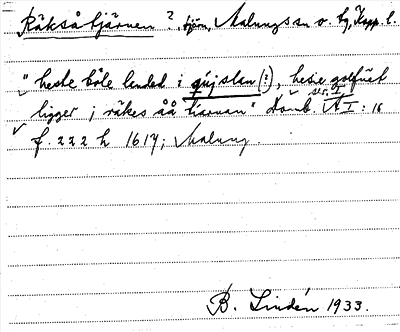 Räksåtjärnen ?, tjärn, Malungs sn o. tg, Kopp. l.
"heste böle lended i güjslan (?), hesie golfüet
ligger j räkes åå tiärnan" Domb. VA I : 16
f. 222 h 1617; Malung.
B. Lindén 1933.